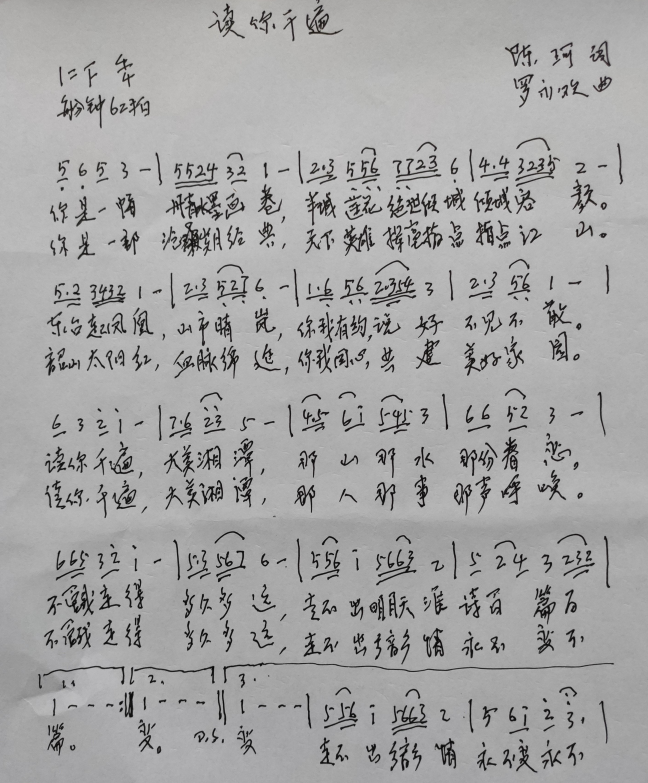 读你千遍
陈珂 词
1=F
罗永欢 曲
每分钟62拍
5 6 5 3 - | 5524 32 1 - | 2·3 556 7723 6 | 4·4 3235 2 - |
你是一幅 丹青水墨画卷，莲花绝世倾城 倾城容颜。
你是一部 沧桑 经典，天下英雄 指点 指点江山。
5·2 3432 1 - | 2·3 527 6 - | 1·6 56 2·354 3 | 2·3 56 1 - |
东台起凤凰，山市晴岚，你我有约，说好 不见不散。
韶山太阳红，血脉绵延，你我同心，共建 美好家园。
6 3 2 i - | 7·6 23 5 - | 4·5 6i 545 3 | 66 52 3 - |
读你千遍，大美湘潭，那山那水 那份眷恋。
读你千遍，大美湘潭，那人那事 那声呼唤。
665 32 i - | 5·3 567 6 - | 556 i 5663 2 | 5 24 3 232 |
不管我走得 多久多远，走不出 诗百篇百
不管我走得 多久多远，走不出 乡情 永不变不
1. 2. 3.
1 - - - :‖ 1 - - - :‖ 1 - - - | 556 i 5663 2 | 5 6i 2 3· |
篇。 变。 D.S. 变 走不出 乡情 永不变永不